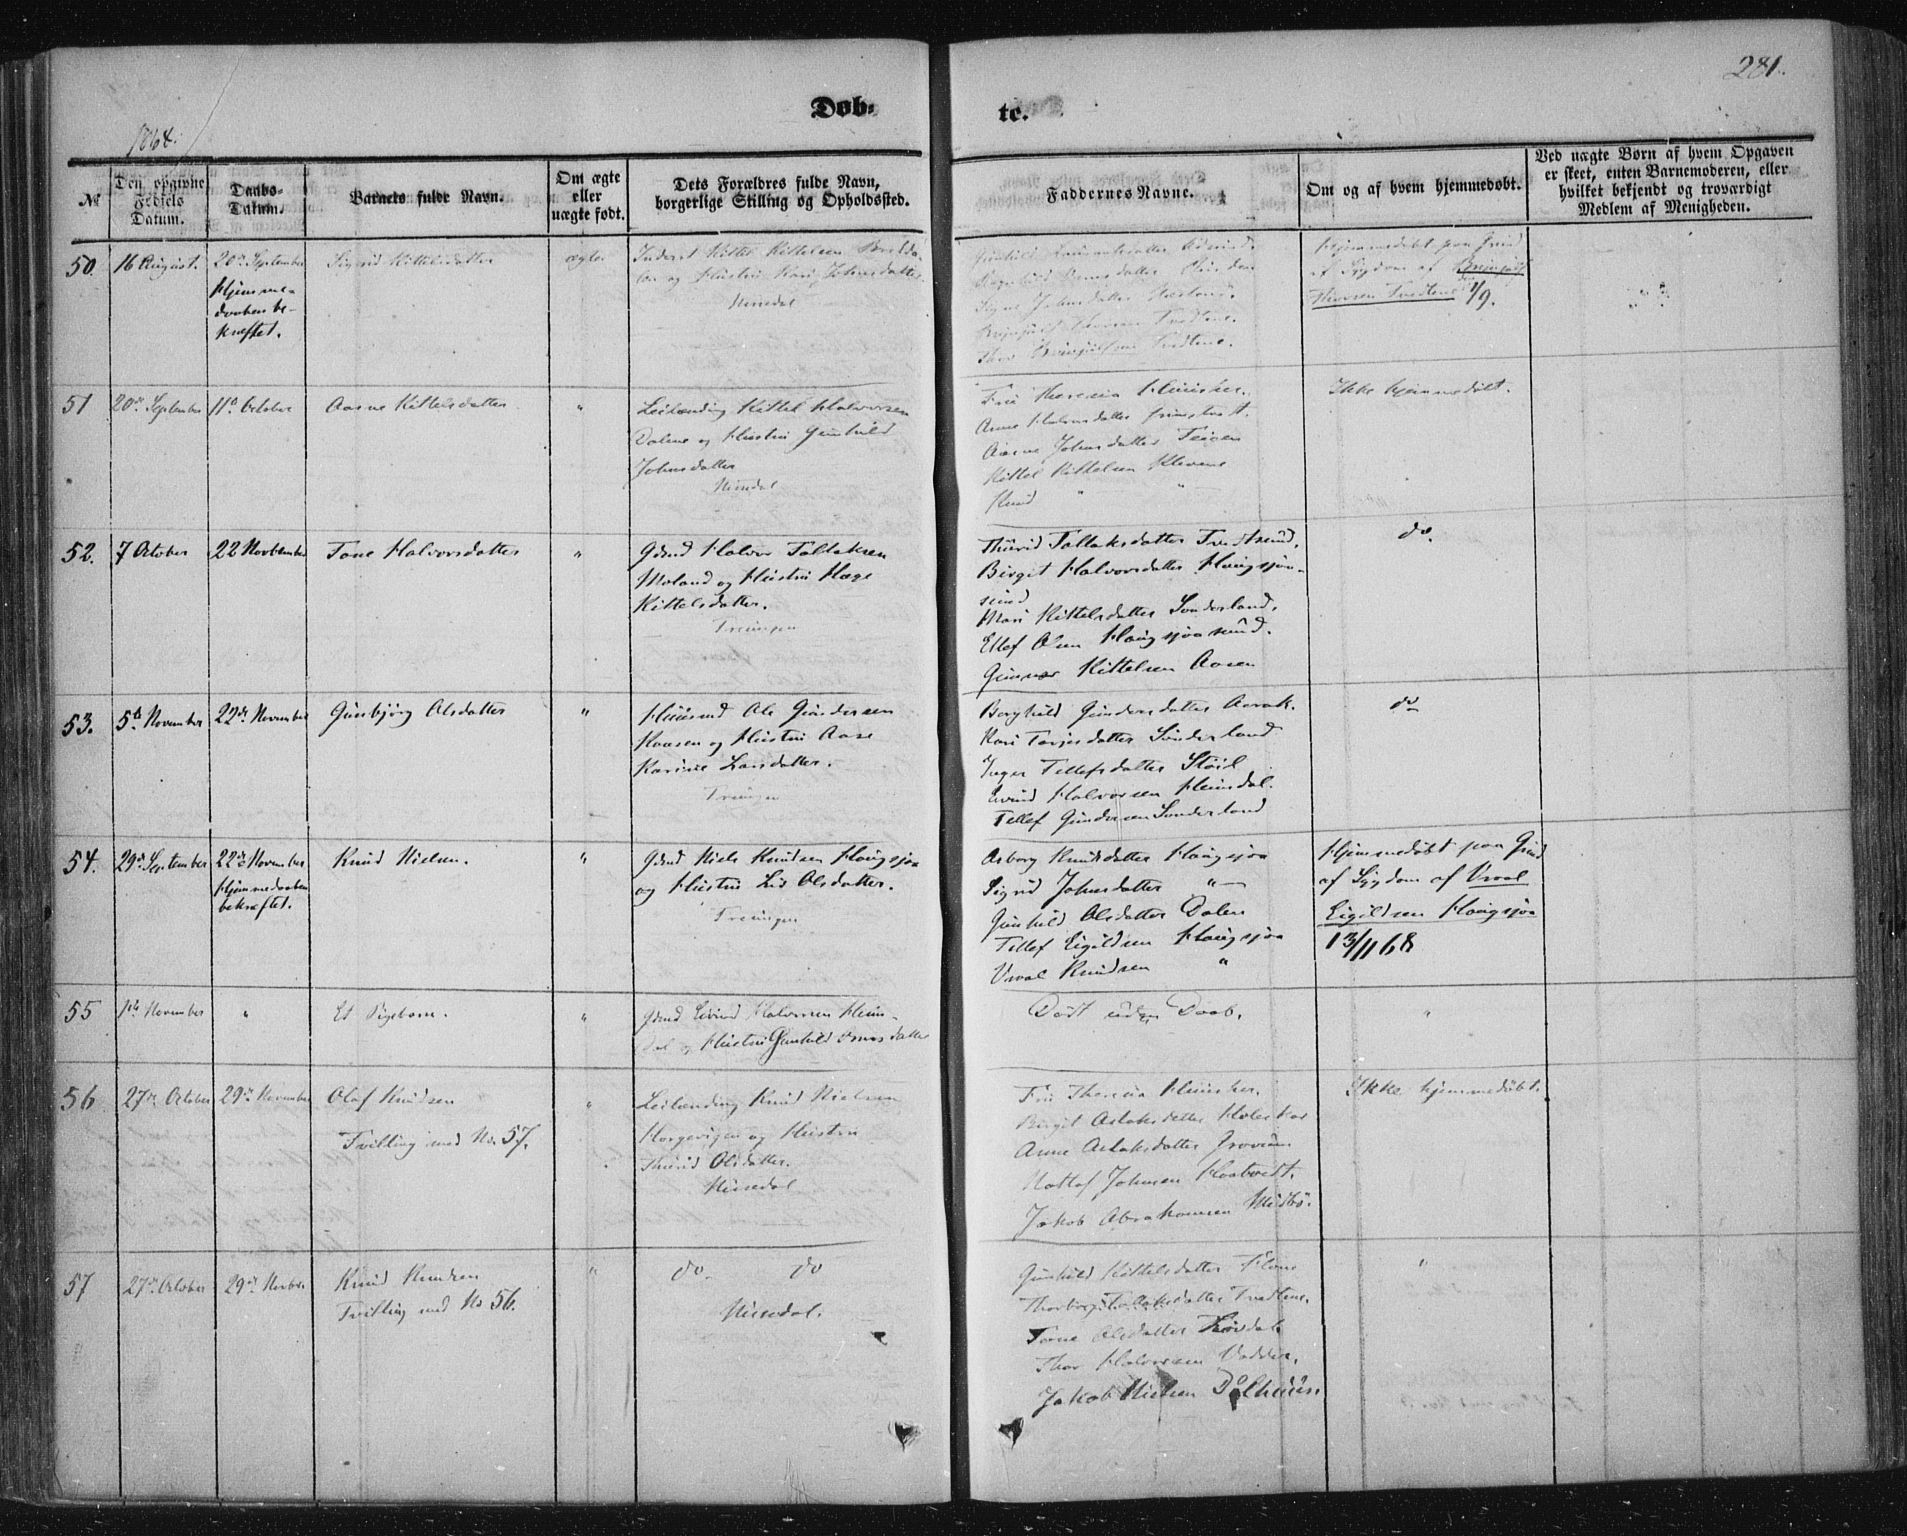 281.
Døb-
te.
1868.
№
Den opgivne Fødsels Datum.
Daabs-Datum.
Barnets fulde Navn.
Om ægte eller uægte født.
Dets Forældres fulde Navn, borgerlige Stilling og Opholdssted.
Faddernes Navne.
Om og af hvem hjemmedøbt.
Ved uægte Børn af hvem Opgaven er skeet, enten Barnemoderen, eller hvilket bekjendt og troværdigt Medlem af Menigheden.
50.
16 August.
20de September
Hjemme-
daaben be-
kræftet.
Sigrid Kittelsdatter
ægte
Inderst Kittel Kittelsen
og Hustru Kari Johnsdatter
Nissedal
Signe Johnsdatter
Brynjulf Thorsen Tvedtene.
Thor Brynjulfsen Tvedtene.
Hjemmedøbt paa Grund
af Sygdom af Brynjulf
Thorsen Tvedtene 1/9.
51
20de September
11te October
Aasne Kittelsdatter
"
Leilænding Kittel Halvorsen
Dalene og Hustru Gunhild
Johnsdatter
Nissedal
Fru Theresia
Anne Halvorsdatter
Aasne Johnsdatter
Kittel Kittelsen Klevene
Knud " "
Ikke hjemmedøbt.
52.
7 October
22 November
Tone Halvorsdatter
"
Gbmd Halvor Tallaksen
Moland og Hustru Hæge
Kittelsdatter.
Treungen
Thurid Tallaksdatter Tvedtsund.
Birgit Halvorsdatter Haugsjaa-
sund
Mari Kittelsdatter Sønderland.
Ellef Olsen Haugsjaasund.
Gunnar Kittelsen Aasen
do.
53.
5te November
22de November
Gunbjørg Olsdatter
"
Huusmd Ole Gundersen
Kaasen og Hustru Aase
Karine Larsdatter.
Treungen
Borghild Gundersdatter Aarak.
Kari Terjesdatter Sønderland
Inger Tellefsdatter Støil
Eivind Halvorsen Heimdal.
Tellef Gundersen Sønderland
do
54.
29de September
22de November
Hjemmedaaben
bekræftet.
Knud Nielsen.
"
Gbmd Niels Knudsen Haugsjaa
og Hustru Liv Olsdatter.
Treungen
Asborg Knudsdatter Haugsjaa
Sigrid Johnsdatter "
Gunhild Olsdatter Dalen
Tellef Eigildsen Haugsjaa
Vraal Knudsen "
Hjemmedøbt paa Grund
af Sygdom af Vraal
Eigildsen Haugsjaa
13/11 68
55
1ste November
"
Et Pigebarn.
"
Gbmd Eivind Halvorsen Heim-
dal og Hustru Gunhild datter
Død uden Daab.
"
56
27de October
29de November
Olaf Knudsen
Tvilling med No. 57.
"
Leilænding Knud Nielsen
Horgevigen og Hustru
Thurid Olsdatter.
Nissedal
Fru Theresia
Birgit Aslaksdatter
Anne Aslaksdatter
Johnsen
Jakob Abrahamsen Midbø.
Ikke hjemmedøbt.
57
27de October
29de Novbr
Knud Knudsen
Tvilling med No 56.
"
do. do
Nissedal.
Gunhild Kittelsdatter
Thorborg Tallaksdatter Tvedtene.
Tone Olsdatter
Thor Halvorsen
Jakob Nielsen
"